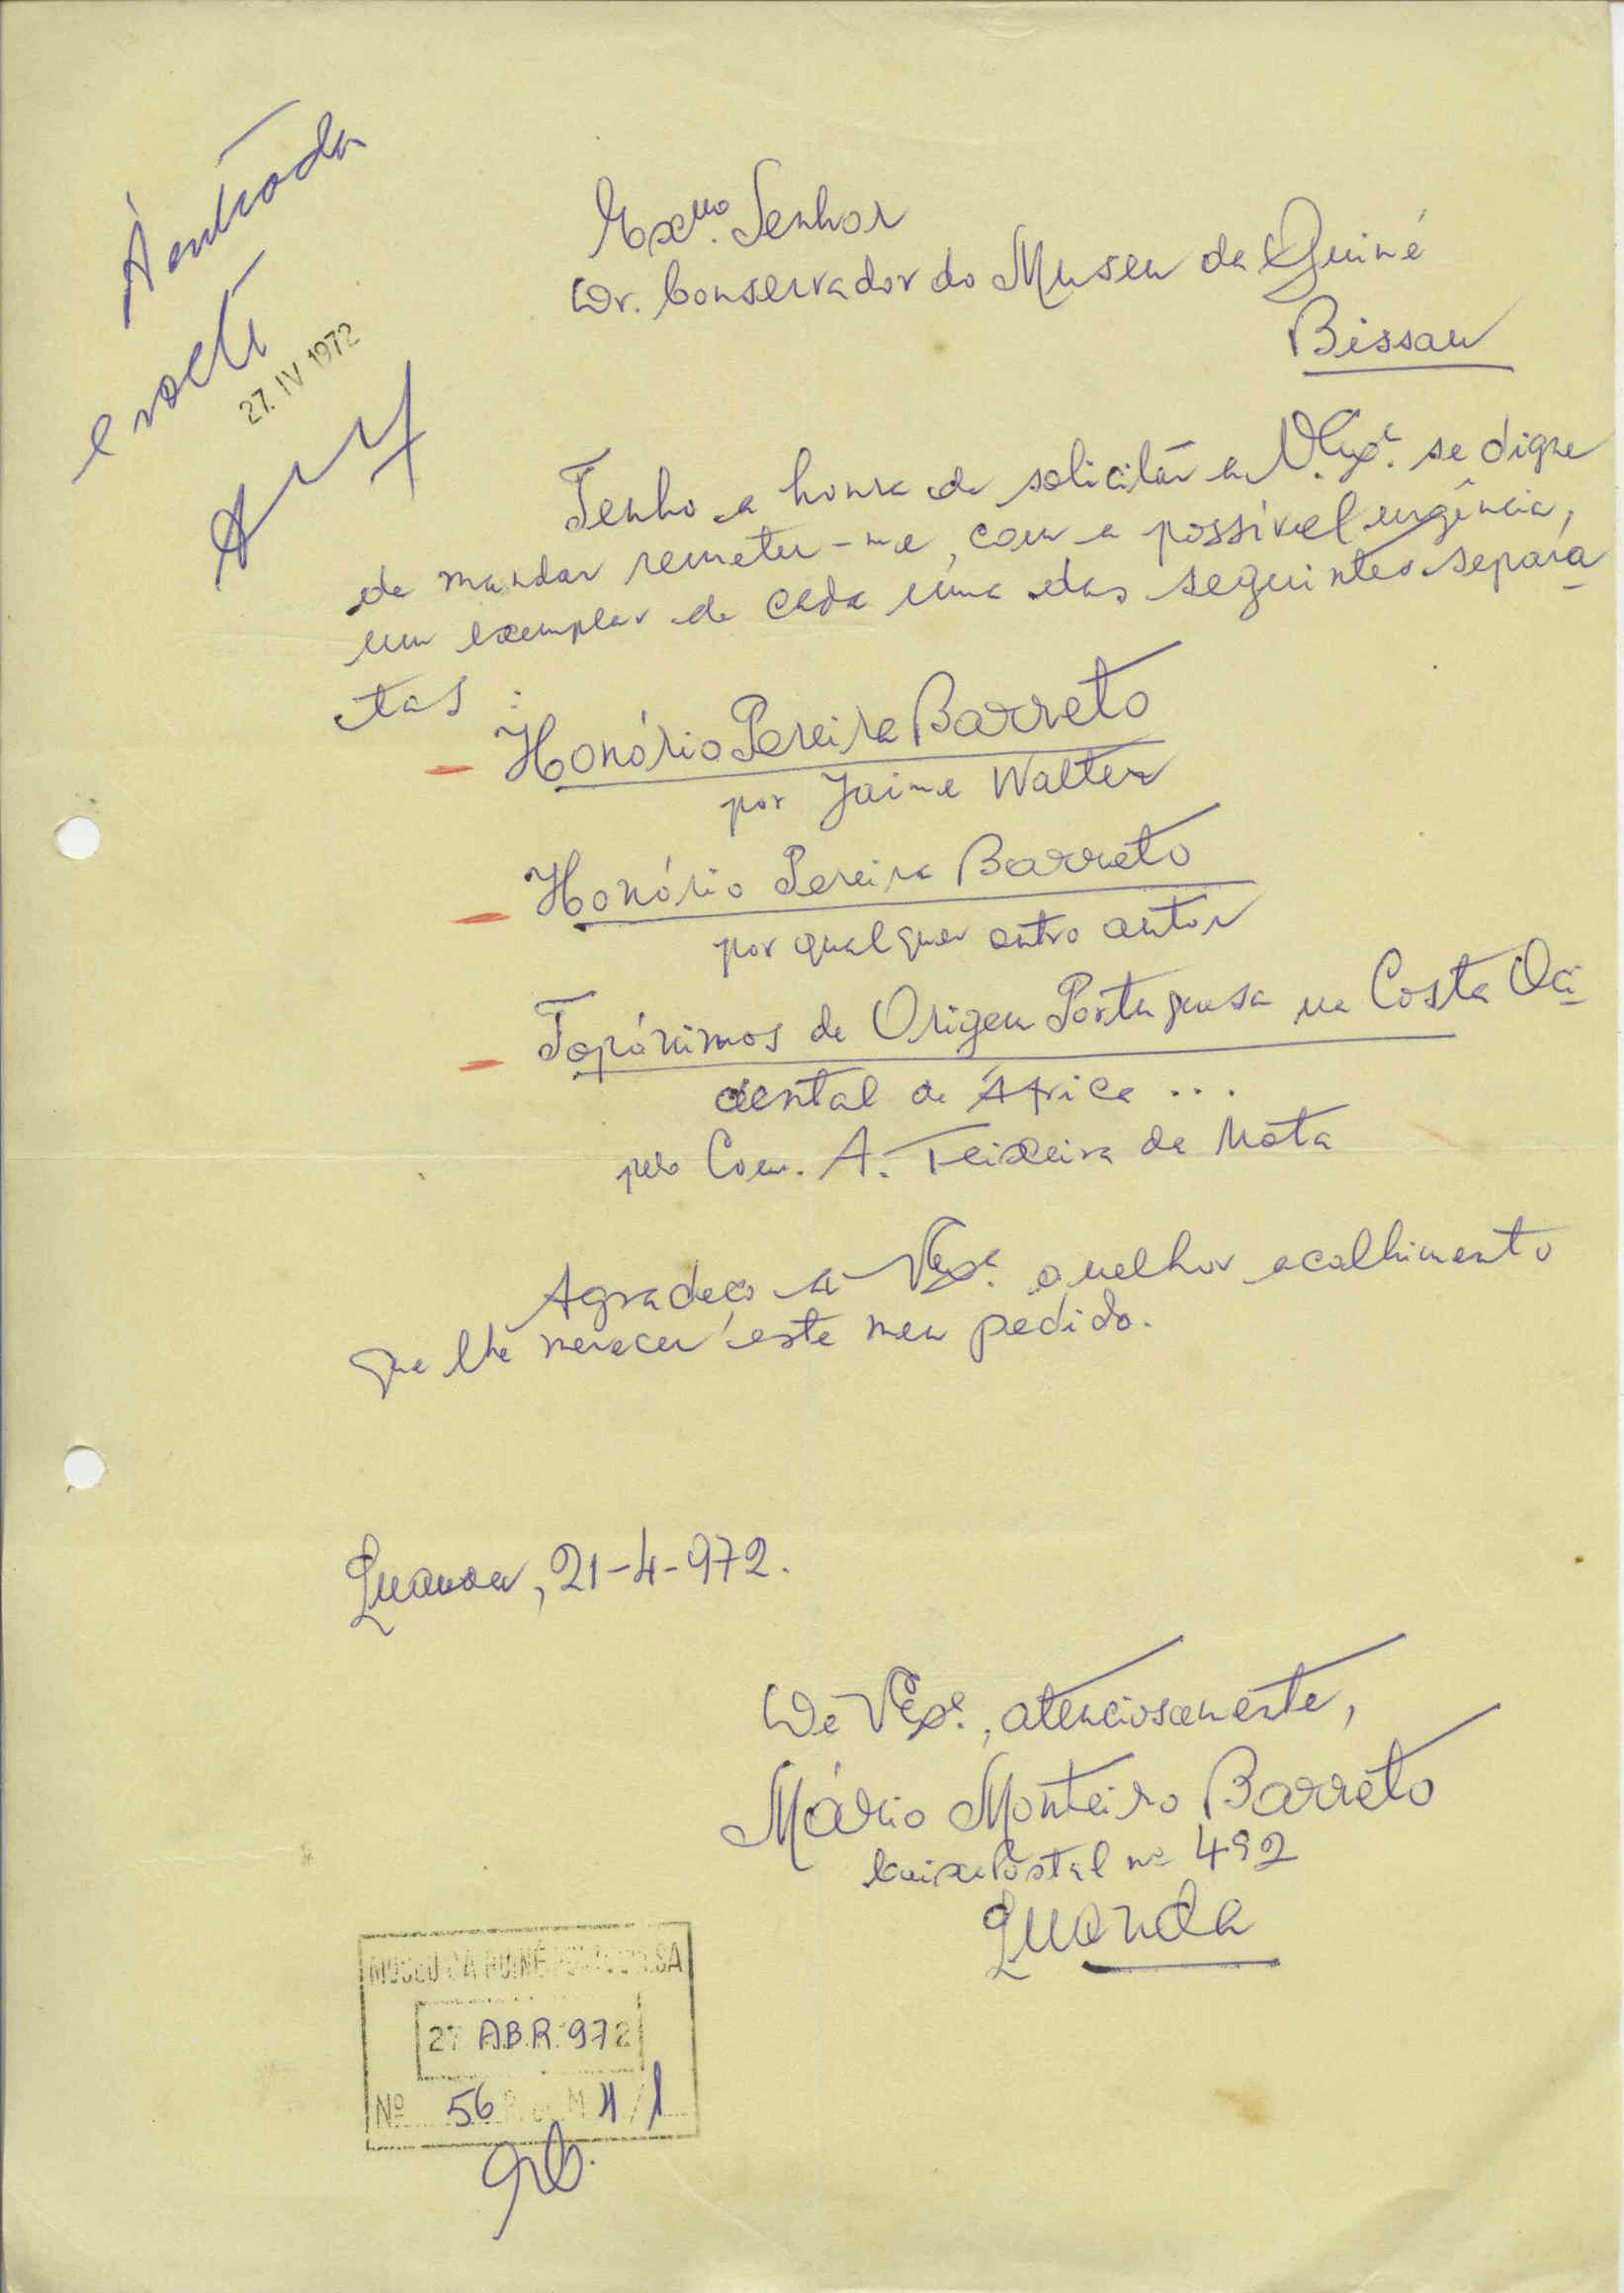 À entrada
e volte
27. IV 1972
Exmo. Senhor
Dr. Conservador do Museu da Guiné
Bissau
Tenho a honra de solicitar a V. Exª. se digne
de mandar remeter-me, com a possível urgência,
um exemplar de cada uma das seguintes separa
tas :
- Honório Pereira Barreto
por Jaime Walter
- Honório Pereira Barreto
por qualquer outro autor
- Topónimos de Origem Portuguesa na Costa Oci
dental de África ...
pelo Com. A. Teixeira da Mota
Agradeço a V. Exª. o melhor acolhimento
que lhe merecer este meu pedido.
Luanda, 21-4-972.
De V. Exª., atenciosamente,
Mário Monteiro Barreto
Caixa Postal nº 492
Luanda
MUSEU DA GUINÉ PORTUGUESA
27 ABR. 972
Nº 56 M 4/1